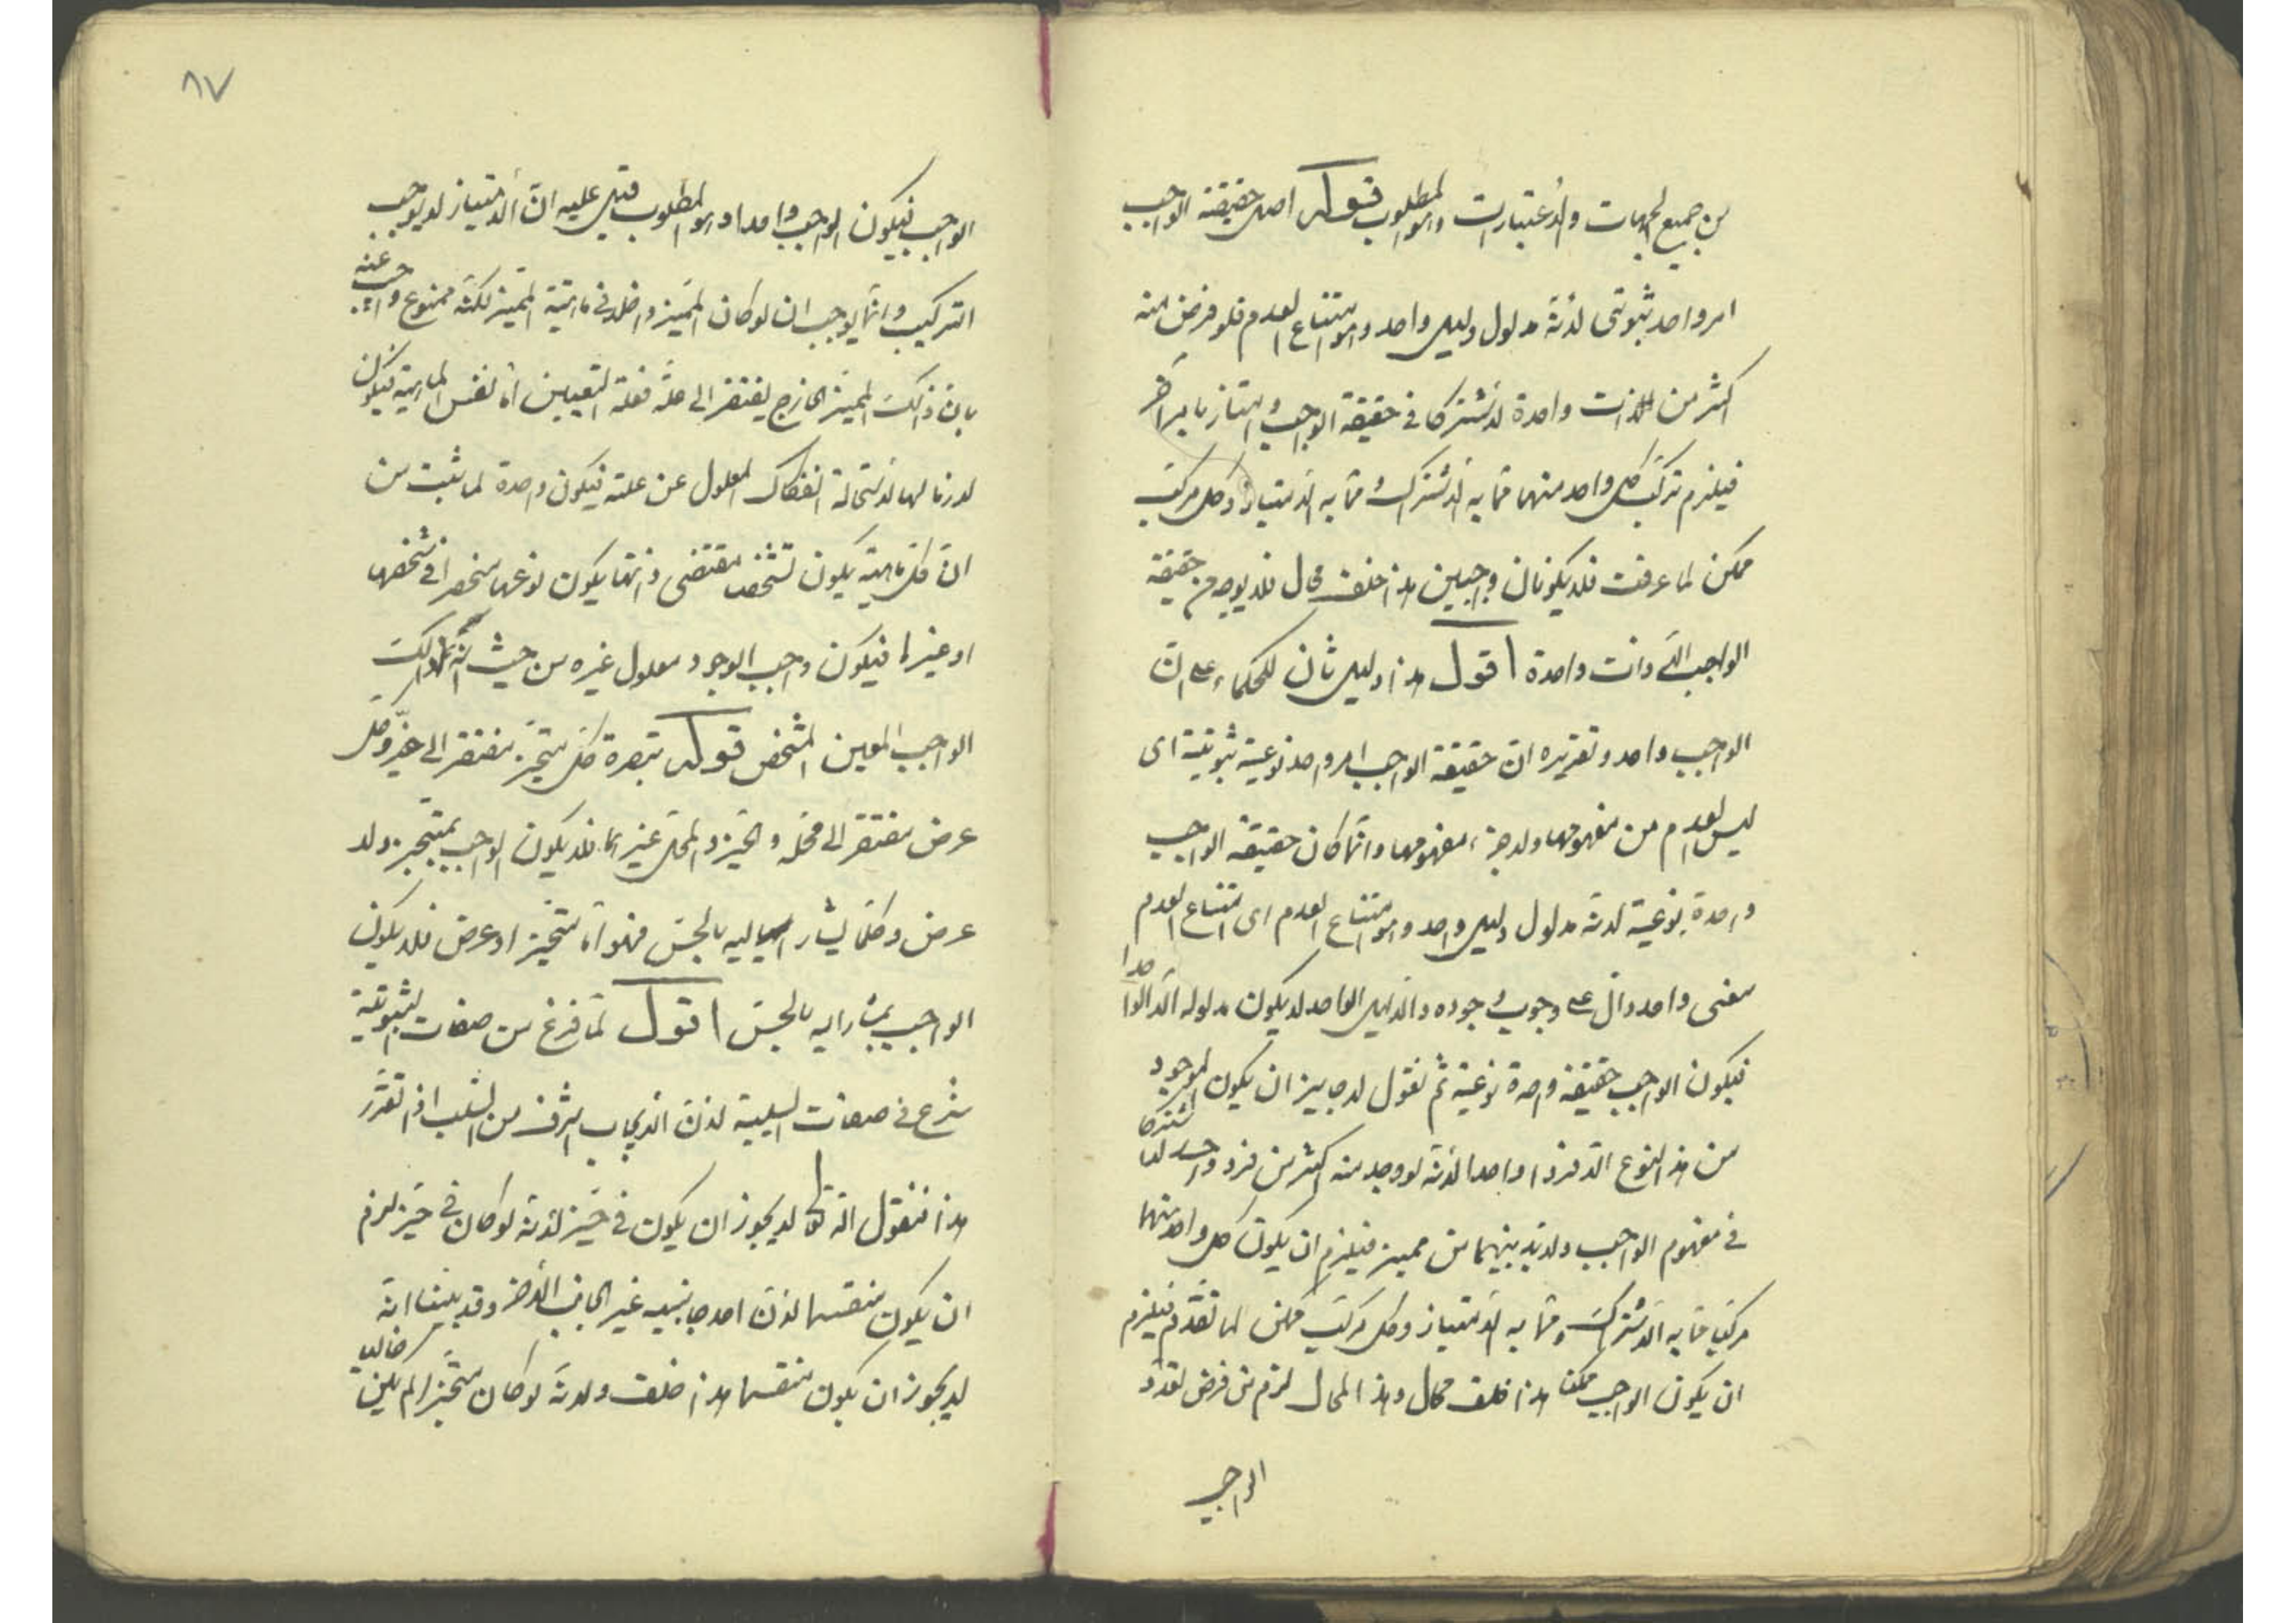 من جميع الجهات والاعتبارات وهو المطلوب قوله اصل حقيقة الواجب
امر واحد ثبوتى لأنه مدلول دليل واحد وهو امتناع العدم فلو فرض منه
اكثر من ذات واحدة لاشتركا فى حقيقة الواجب وامتاز بامر آخر
فيلزم تركب كل واحد منهما مما به الاشتراك ومما به الامتياز وكل مركب
ممكن لما عرفت فلا يكونان واجبين هذا خلف محال فلا يوجد من حقيقة
الواجب الا ذات واحدة اقول هذا دليل ثان للحكماء على ان
الواجب واحد وتقريره ان حقيقة الواجب امر واحد نوعية ثبوتية اى
ليس العدم من مفهومها ولا جزء مفهومها وانما كان حقيقة الواجب
واحدة نوعية لانه مدلول دليل واحد وهو امتناع العدم اى امتناع العدم
معنى واحد دال على وجوب وجوده والدليل الواحد لا يكون مدلوله الا واحدا
فيكون الواجب حقيقة واحدة نوعية ثم نقول لا جايز ان يكون الموجود
من هذا النوع الا فردا واحدا لانه لو وجد منه اكثر من فرد واحد لاشتركا
فى مفهوم الواجب ولا بد بينهما من مميز فيلزم ان يكون كل واحد منهما
مركبا مما به الاشتراك ومما به الامتياز وكل مركب ممكن لما تقدم فيلزم
ان يكون الواجب ممكنا هذا خلف محال وهذا المحال لزم من فرض تعدد
الواجب
٨٧
الواجب فيكون الواجب واحدا وهو المطلوب قيل عليه ان الامتياز لا يوجب
التركيب وانما يوجب ان لو كان المميز داخلا فى ماهية المتميز لكنه ممنوع واجيب عنه
بان ذلك المميز الخارج يفتقر الى علة فعلة التعيين اما نفس الماهية فيكون
لازما لها لاستحالة انفكاك المعلول عن علته فيكون واحدة لما ثبت من
ان كل ماهية يكون تشخصها مقتضى ذاتها يكون نوعها منحصرا فى شخصها
او غيرها فيكون واجب الوجود معلول غيره من حيث انه ذلك
الواجب المعين المشخص قوله تبصرة كل متحيز مفتقر الى حيزه وكل
عرض مفتقر الى محله والحيز والمحل غيرهما فلا يكون الواجب بمتحيز ولا
عرض وكلما يشار اليه بالحس فهو اما متحيز او عرض فلا يكون
الواجب بمشار اليه بالحس اقول لما فرغ من صفات الثبوتية
شرع فى صفات السلبية لان الايجاب اشرف من السلب اذا تقرر
هذا فنقول انه تعالى لا يجوز ان يكون فى حيز لأنه لو كان فى حيز لزم
ان يكون منقسما لان احد جانبيه غير الجانب الاخر وقد بينا انه
لا يجوز ان يكون منقسما هذا خلف ولانه لو كان متحيزا لم يكن خاليا